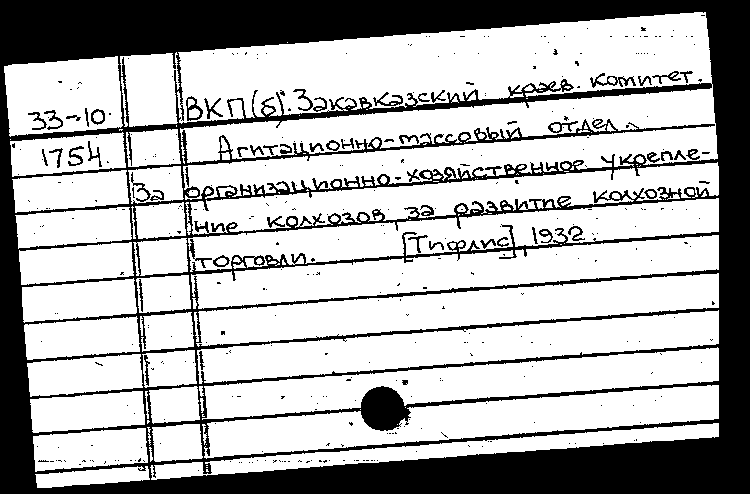 33-10 ВКП(б). Закавказский краев. комитет.
1754. Агитационно-массовый отдел.
За организационно-хозяйственное укрепле-
ние колхозов, за развитие колхозной
торговли. [Тифлис], 1932.